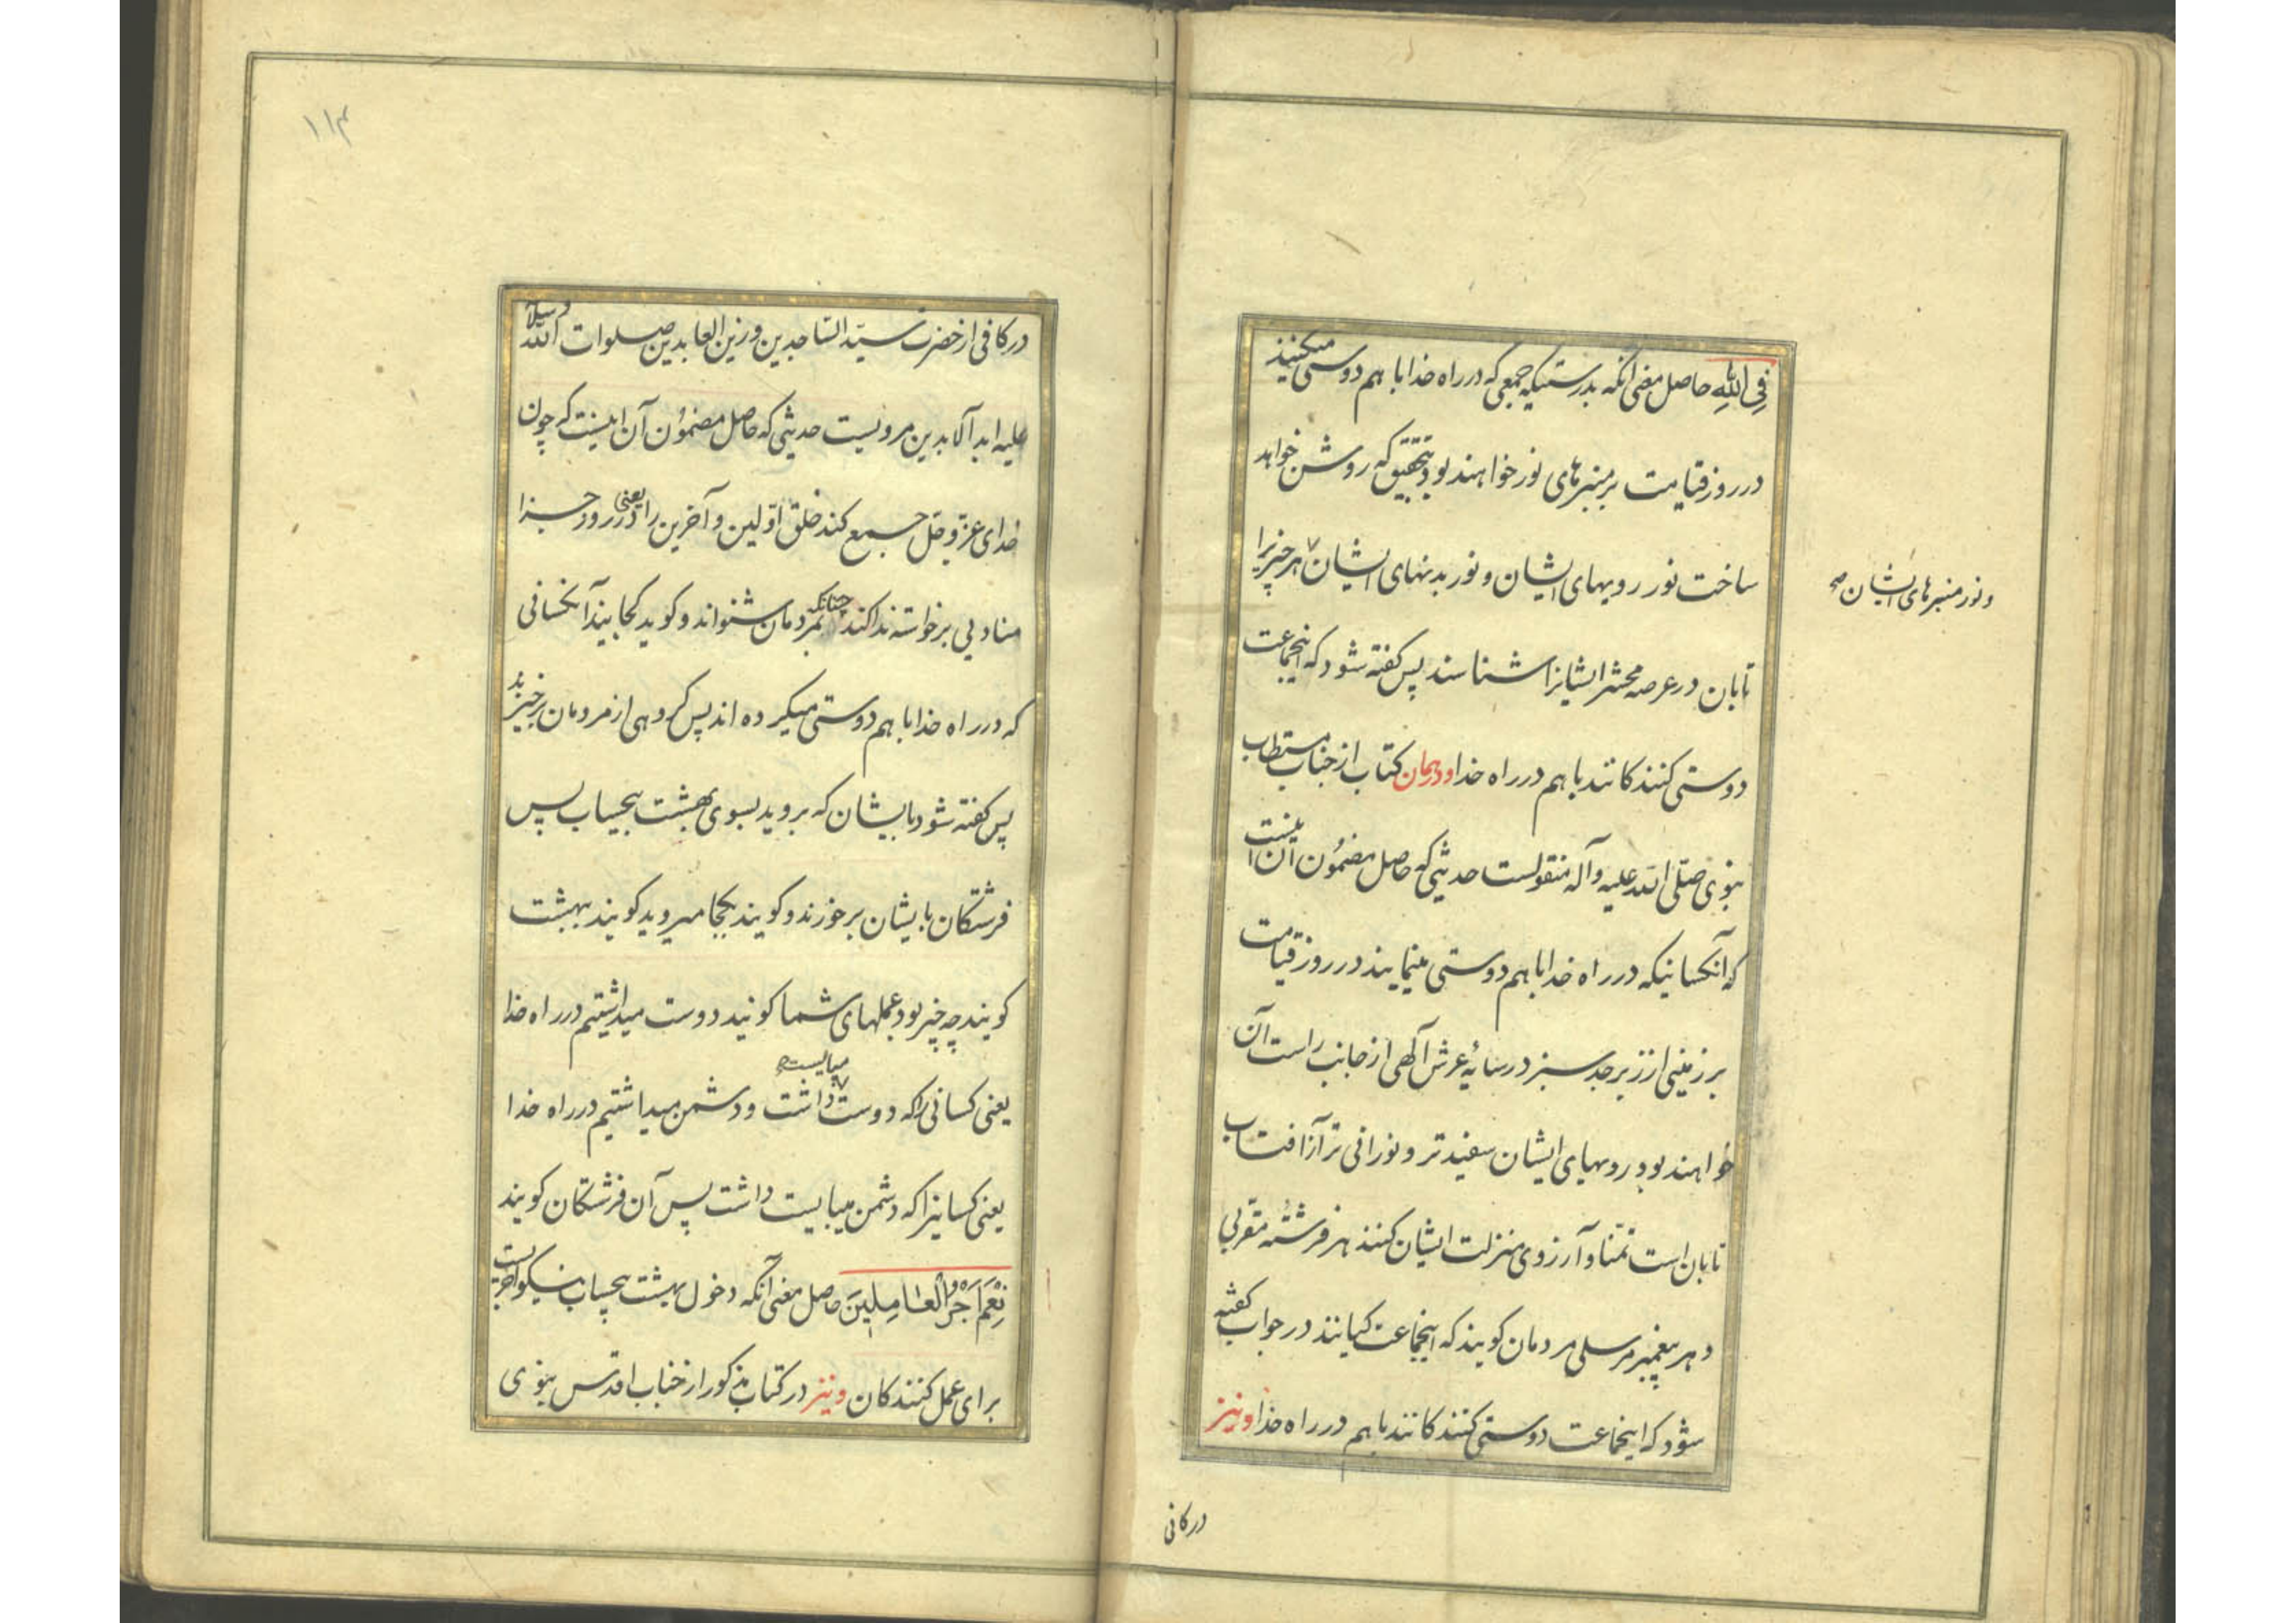 فِی اللهِ حاصل معنی آنکه بدرستیکه جمعی که در راه خدا با هم دوستی میکنند
در روز قیامت بر منبرهای نور خواهند بود بتحقیق که روشن خواهد
ساخت نور رویهای ایشان و نور بدنهای ایشان هر چیزیرا
و نور منبرهای ایشان صح
تابان در عرصه محشر ایشانرا شناسند پس کفته شود که اینجماعت
دوستی کنندکانند با هم در راه خدا و در همان کتاب از جناب مستطاب
نبوی صلّی الله علیه و آله منقولست حدیثی که حاصل مضمون آن اینست
که آنکسانیکه در راه خدا با هم دوستی مینمایند در روز قیامت
بر زمینی از زبرجد سبز در سایهٔ عرش آلهی از جانب راست آن
خواهند بود رویهای ایشان سفیدتر و نورانی تر از آفتاب
تابان است تمنا و آرزوی منزلت ایشان کنند هر فرشتهٔ مقربی
و هر پیغمبر مرسلی مردمان کویند که اینجماعت کیانند در جواب کفته
شود که اینجماعت دوستی کنندکانند با هم در راه خدا و نیز
در کافی
۱۱۴
در کافی از حضرت سیّد السّاجدین و زین العابدین صلوات الله و سلامه
علیه ابد آلابدین مرویست حدیثی که حاصل مضمون آن اینست که چون
خدای عزّ و جلّ جمع کند خلق اوّلین و آخرین را یعنی در روز جزا
منادیی برخواسته ندا کند چنانکه بمردمان شنواند و کوید کجایند آنکسانی
که در راه خدا با هم دوستی میکرده اند پس کروهی از مردمان برخیزند
پس کفته شود بایشان که بروید بسوی بهشت بیحساب پس
فرشتکان بایشان برخورند و کویند بکجا میروید کویند ببهشت
کویند چه چیز بود عملهای شما کویند دوست میداشتیم در راه خدا
میبایست
یعنی کسانی را که دوست داشت و دشمن میداشتیم در راه خدا
یعنی کسانیرا که دشمن میبایست داشت پس آن فرشتکان کویند
نِعْمَ اَجْرُ الْعٰامِلِینَ حاصل معنی آنکه دخول بهشت بیحساب نیکو اجریست
برای عمل کنندکان و نیز در کتاب مذکور از جناب اقدس نبوی